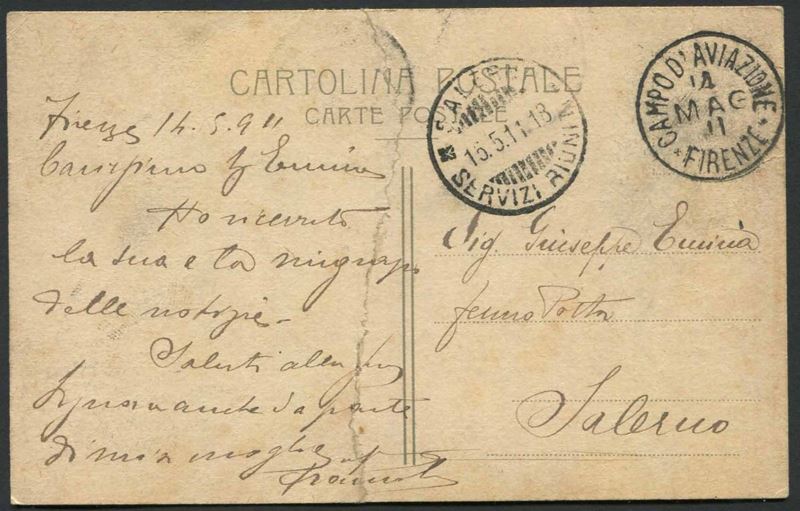 CARTOLINA POSTALE
CARTE POSTALE
CAMPO D'AVIAZIONE
14
MAG
11
* FIRENZE *
SALERNO
15.5.11-18
SERVIZI RIUNITI
Firenze 14.5.911
Carissimo Emina
Ho ricevuto
la sua e la ringrazio
delle notizie -
Saluti alla sua
Signora anche da parte
di mia moglie
Sig. Giuseppe Emina
fermo Posta
Salerno